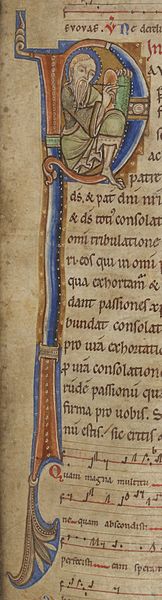 evovae.
patrē
dš. & pat̄ dn̄i nr̄i
& dš toti᷒ consolat
omi tribulatione
ri eos qui in omi p
qua exhortam᷒ &
dant passiones xp̄
bundat consolat
pro uīa exhortatio
ꝑ uīa consolatione
passionū qua
firma pro uobis. S
nū estis. sic eritis
Quam magna multitu
ne quam abscondisti
perfecisti eam sperat